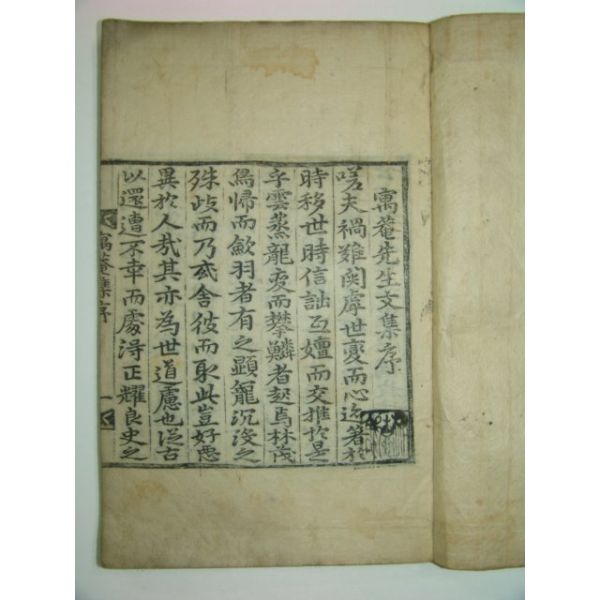 寓菴先生文集序
嗟夫禍難関虖世變而心迹著於
時移世時信詘互嬗而交推於是
乎雲蒸龍変而攀鱗者起焉林茂
鳥帰而歛羽者有之顕寵沉没之
殊歧而乃或舍彼而取此豈好惡
異於人哉其亦為世道慮也迃古
以還遭不幸而處得正耀良史之
寓菴集序
一